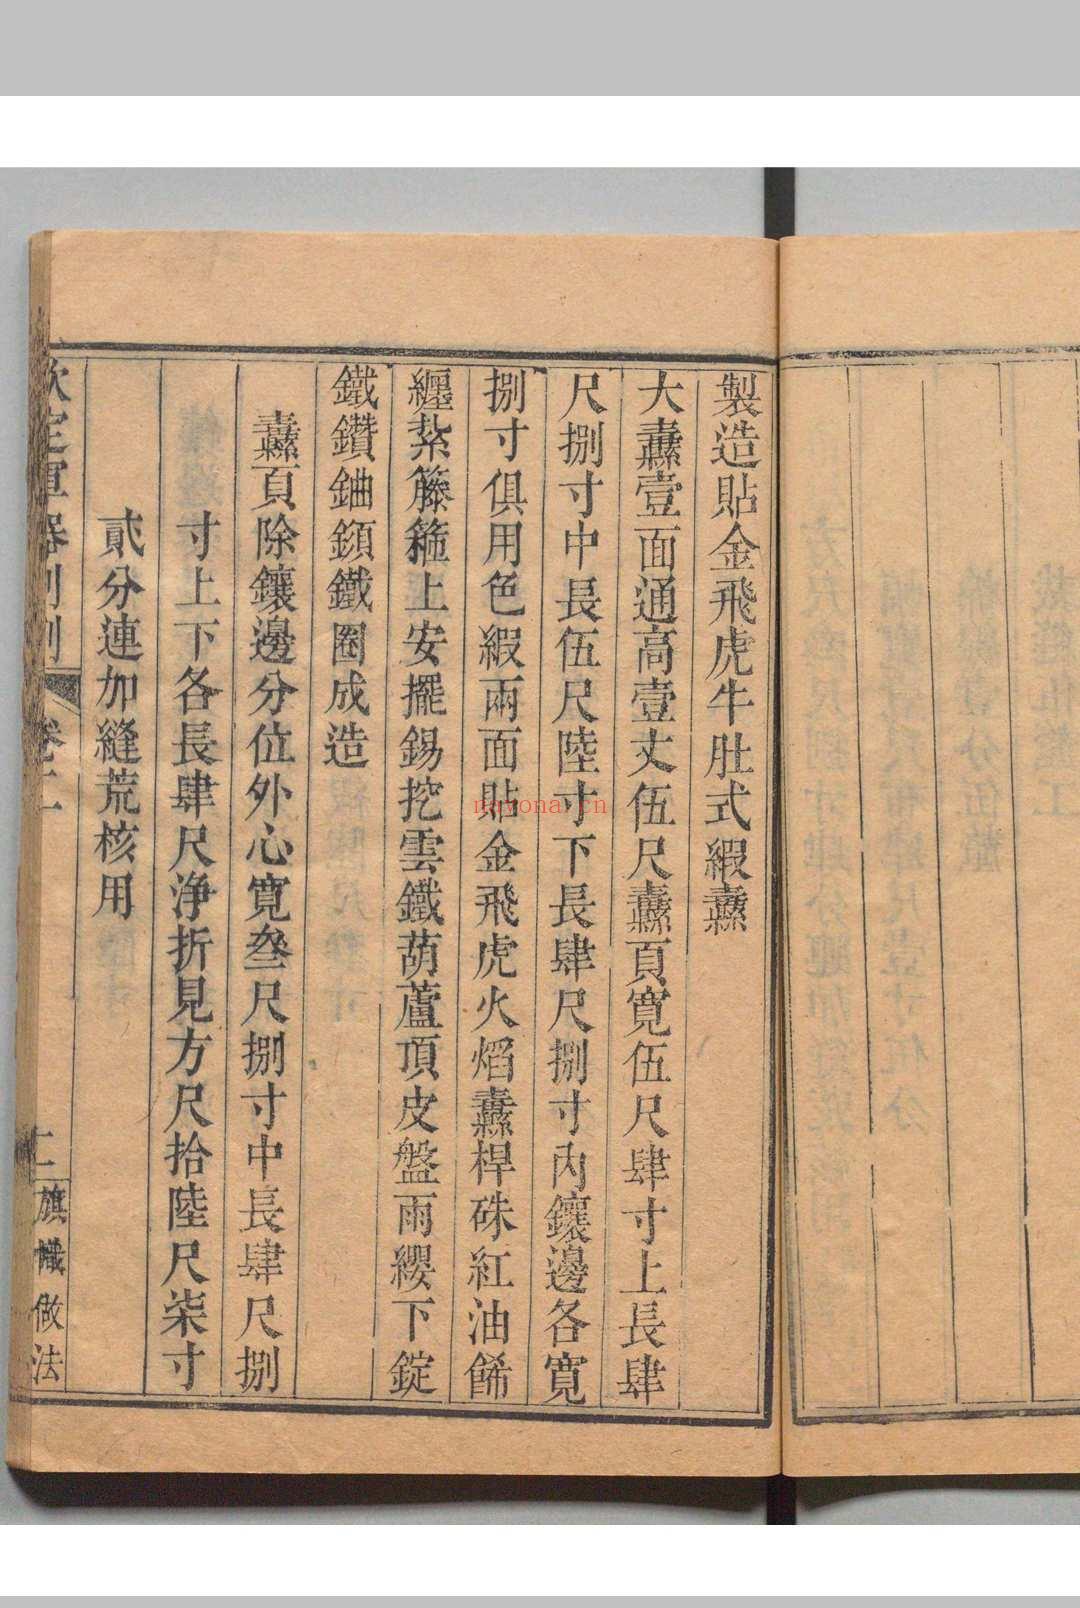 製造貼金飛虎牛肚式緞纛
大纛壹面通高壹丈伍尺纛頁寬伍尺肆寸上長肆
尺捌寸中長伍尺陸寸下長肆尺捌寸內鑲邊各寬
捌寸俱用色緞兩面貼金飛虎火熖纛桿硃紅油餙
纏紮籐箍上安擺錫挖雲鐵葫蘆頂皮盤雨纓下錠
鐵鑽鈾鋇鐵圈成造
纛頁除鑲邊分位外心寬叄尺捌寸中長肆尺捌
寸上下各長肆尺淨折見方尺拾陸尺柒寸
貳分連加縫荒核用
欽定軍器則例 卷二 二 旗幟做法
nayona.cn